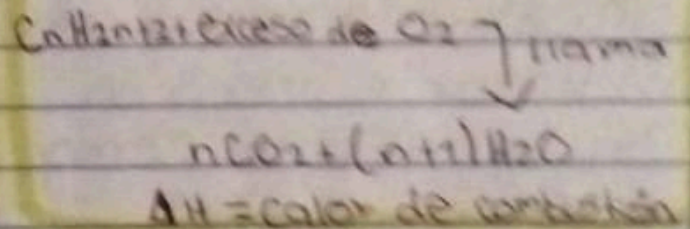 CnH2n+2+exceso de O2 llama
nCO2+(n+1)H2O
ΔH=calor de combustión